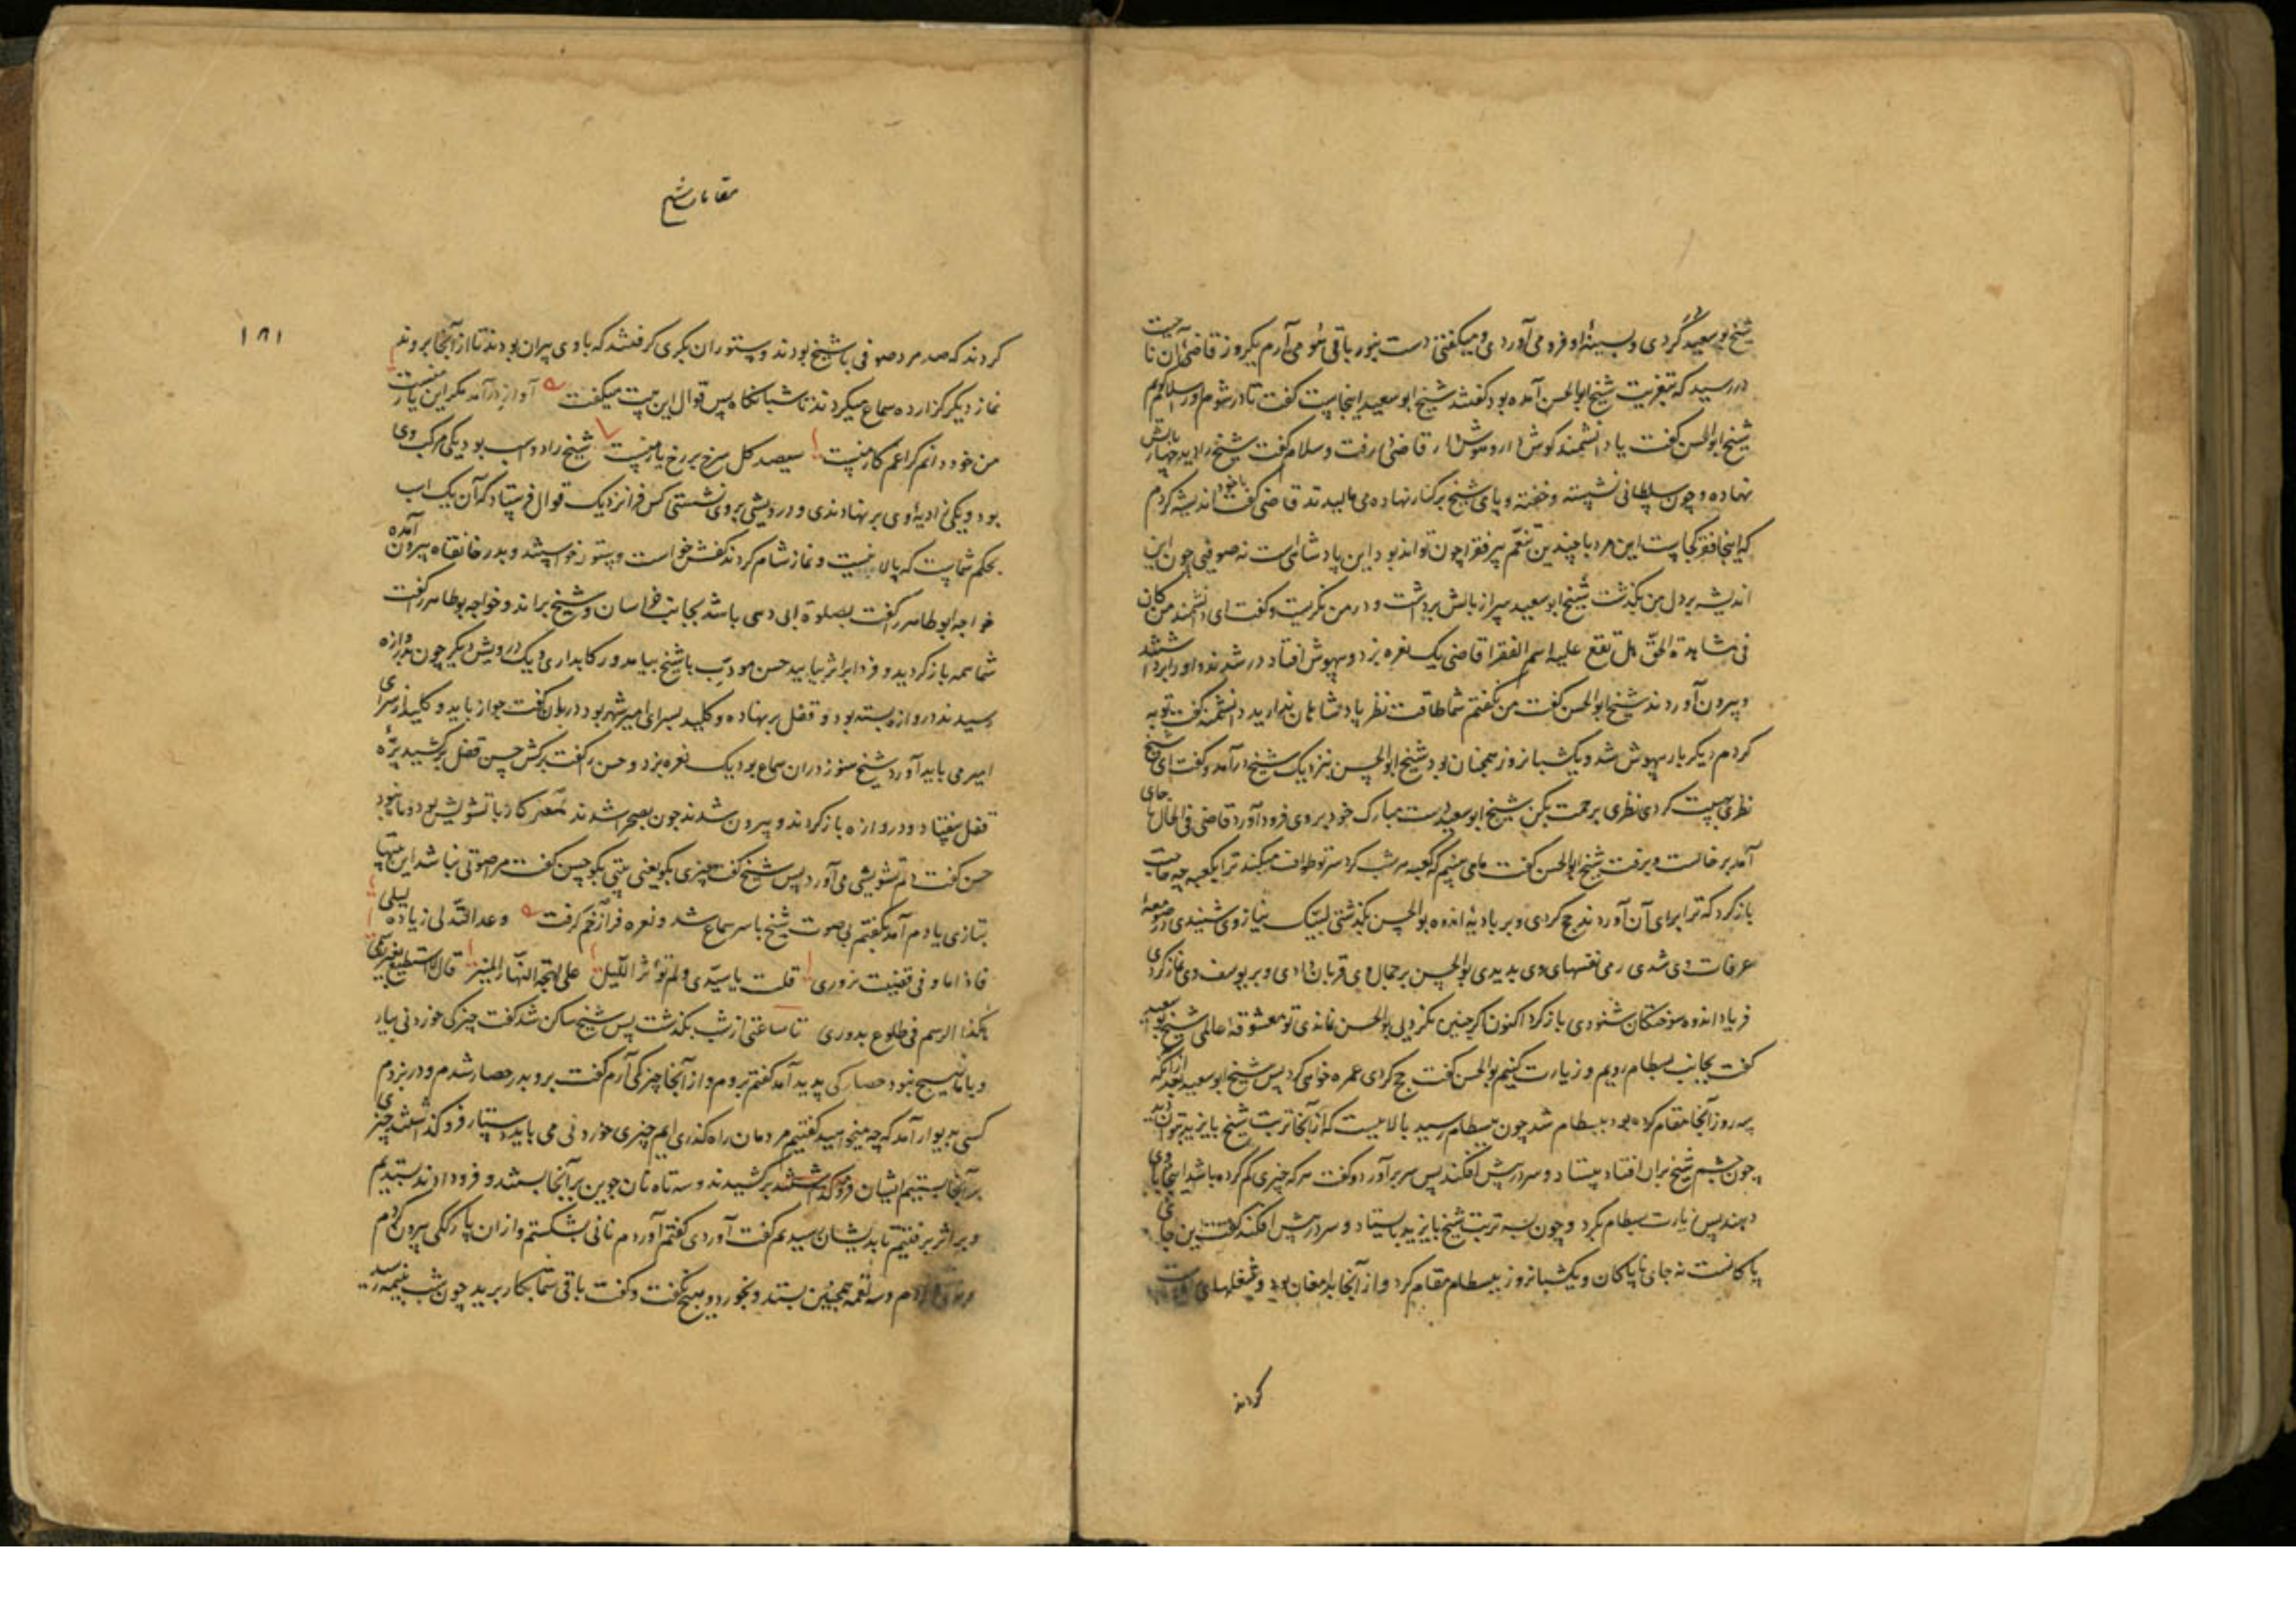 شیخ بوسعید کردی و بسینهٔ او فرو می‌آوردی و میگفتی دست بنور باقی فرو می‌آرم یکروز قاضی آن ناحیت
در رسید که بتعزیت شیخ ابوالحسن آمده بود گفتند شیخ ابوسعید اینجاست گفت تا در شوم و سلام گویم
شیخ ابوالحسن گفت یا دانشمند گوش دار و هوش دار قاضی در رفت و سلام گفت شیخ را دید چهار بالش
نهاده و چون سلطانی نشسته و خفته و پای شیخ بر کنار نهاده می مالیدند قاضی گفت با خود اندیشه کردم
که اینجا فقر کجاست این مرد با چندین تنعّم پیر فقرا چون تواند بود این پادشائی است نه صوفیی چون این
اندیشه بر دل من بگذشت شیخ ابوسعید سر از بالش برداشت و در من نگریست و گفت ای دانشمند من کان
فی مشاهدة الحقّ هل تقع علیه اسم الفقرا قاضی یک نعره بزد و بیهوش افتاد در شدند و او را برداشتند
و بیرون آوردند شیخ ابوالحسن گفت من نگفتم شما طاقت نظر پادشاهان ندارید دانشمند گفت توبه
کردم دیگر بار بیهوش شد و یکشبانروز همچنان بود شیخ ابوالحسن بنزدیک شیخ درآمد و گفت ای شیخ
نظری بهیبت کردی نظری برحمت بکن شیخ ابوسعید دست مبارک خود بر وی فرود آورد قاضی فی الحال با جای
آمد برخاست و برفت شیخ ابوالحسن گفت ما می بینیم که کعبه هر شب گرد سر تو طواف میکند ترا بکعبه چه حاجت
بازگرد که ترا برای آن آوردند حج کردی و بر بادیهٔ اندوه بوالحسن بگذشتی لبیک نیاز وی شنیدی در صومعهٔ
عرفات وی شدی رمی نفسهای وی بدیدی بوالحسن بر جمال وی قربان دادی و بر یوسف وی نماز کردی
فریاد اندوه سوختگان شنودی بازگرد اکنون اگر چنین نکردیی بوالحسن نماندی تو معشوقهٔ عالمی شیخ بوسعید
گفت بجانب بسطام رویم و زیارت کنیم بوالحسن گفت حج کردی عمره خواهی کرد پس شیخ ابوسعید بعد از آنکه
سه روز آنجا مقام کرده بود ببسطام شد چون ببسطام رسید بالاییست که از آنجا تربت شیخ بایزید بتوان دید
چون چشم شیخ بر آن افتاد بیستاد و سر در پیش افکند پس سر برآورد و گفت هر که چیزی گم کرده باشد اینجا با وی
دهند پس زیارت بسطام بکرد و چون بسر تربت شیخ بایزید بیستاد و سر در پیش افکند گفت این جای
پاکانست نه جای ناپاکان و یکشبانروز ببسطام مقام کرد و از آنجا بدامغان بود و شغلهای
کردند
مقامات شیخ
۱۸۱
کردند که صد مرد صوفی با شیخ بودند و ستوران بکری گرفتند که با وی پیران بودند تا از آنجا بروند
نماز دیگر گزارده سماع میکردند تا شبانگاه پس قوال این بیت میگفت آواز درآمد مگر این یار منست
من خود دانم کرا غم کار منست سیصد گل سرخ بر رخ یار منست شیخ را دو اسب بود یکی مرکب وی
بود و یکی زادیهٔ وی بر نهادندی و درویشی بر وی نشستی کس فرا نزدیک قوال فرستاد که آن یک اسب
بحکم شماست که پالانیست و نماز شام کردند کفش خواست و ستور خواستند و بدر خانقاه بیرون آمده
خواجه ابوطاهر را گفت بصلوة ابی دهی باشد بجانب خراسان و شیخ براند و خواجه بوطاهر را گفت
شما همه بازگردید و فردا بر اثر بیایید حسن مودب با شیخ بیامد و رکابداری و یک درویش دیگر چون بدروازه
رسیدند دروازه بسته بود و قفل بر نهاده و کلید بسرای امیر شهر بود دربان گفت جواز باید و کلید از سرای
امیر می باید آورد شیخ هنوز در آن سماع بود یک نعره بزد و حسن را گفت برکش حسن قفل برکشید پرّه
قفل بیفتاد و دروازه باز کردند و بیرون شدند چون بصحرا شدند مگر کار با تشویش بود و ما نبود
حسن گفت دلم تشویشی می آورد پس شیخ گفت چیزی بگو یعنی بیتی بگو حسن گفت مرا صوتی نباشد این بیتها
بتازی یادم آمد بگفتم بی صوت شیخ با سر سماع شد و نعره فراز خم گرفت وعد القدّ لی زیاده لیلی
فاذا ما وفی قضیت نزوری قلت یا سیدی ولم تؤثر اللیل علی بهجة النهار المنیر قال لا استطیع تغییر رسمی
هکذا الرسم فی طلوع بدوری تا ساعتی از شب بگذشت پس شیخ ساکن شد گفت چیزکی خوردنی بیار
و با ما هیچ نبود حصارکی پدید آمد گفتم بروم و از آنجا چیزکی آرم گفت برو بدر حصار شدم و در بزدم
کسی بدیوار آمد که چه میخواهید گفتیم مردمان راه گذری ایم چیزی خوردنی می باید دستار فرو گذاشتند چیزی
بر آنجا بستیم ایشان فرو گذاشتند برکشیدند و سه تاه نان جوین بر آنجا بستند و فرو دادند بستدیم
و بر اثر برفتیم تا بدیشان رسیدیم گفت آوردی گفتم آوردم نانی بشکستم و از آن پارگکی بیرون کردم
دادم و سه لقمه همچنین بستد و بخورد و هیچ نگفت و گفت باقی شما بکار برید چون شب بنیمه رسید